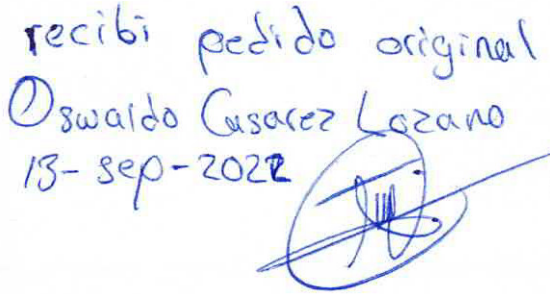 recibi pedido original
Oswaldo Casarez Lozano
13-sep-2022